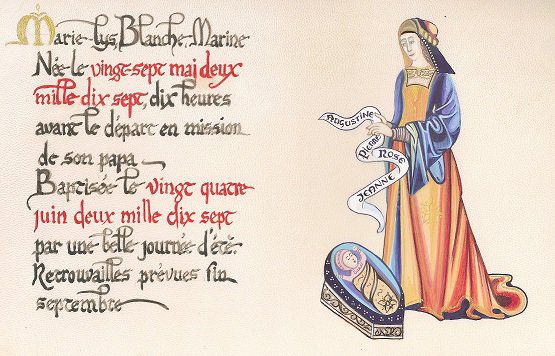 Marie-lys, Blanche, Marine
Née le vingt-sept mai deux
mille dix sept, dix heures
avant le départ en mission
de son papa
Baptisée le vingt quatre
juin deux mille dix sept
par une belle journée d'été.
Retrouvailles prévues fin
septembre
AUGUSTINE
PIERRE
ROSE
JEANNE